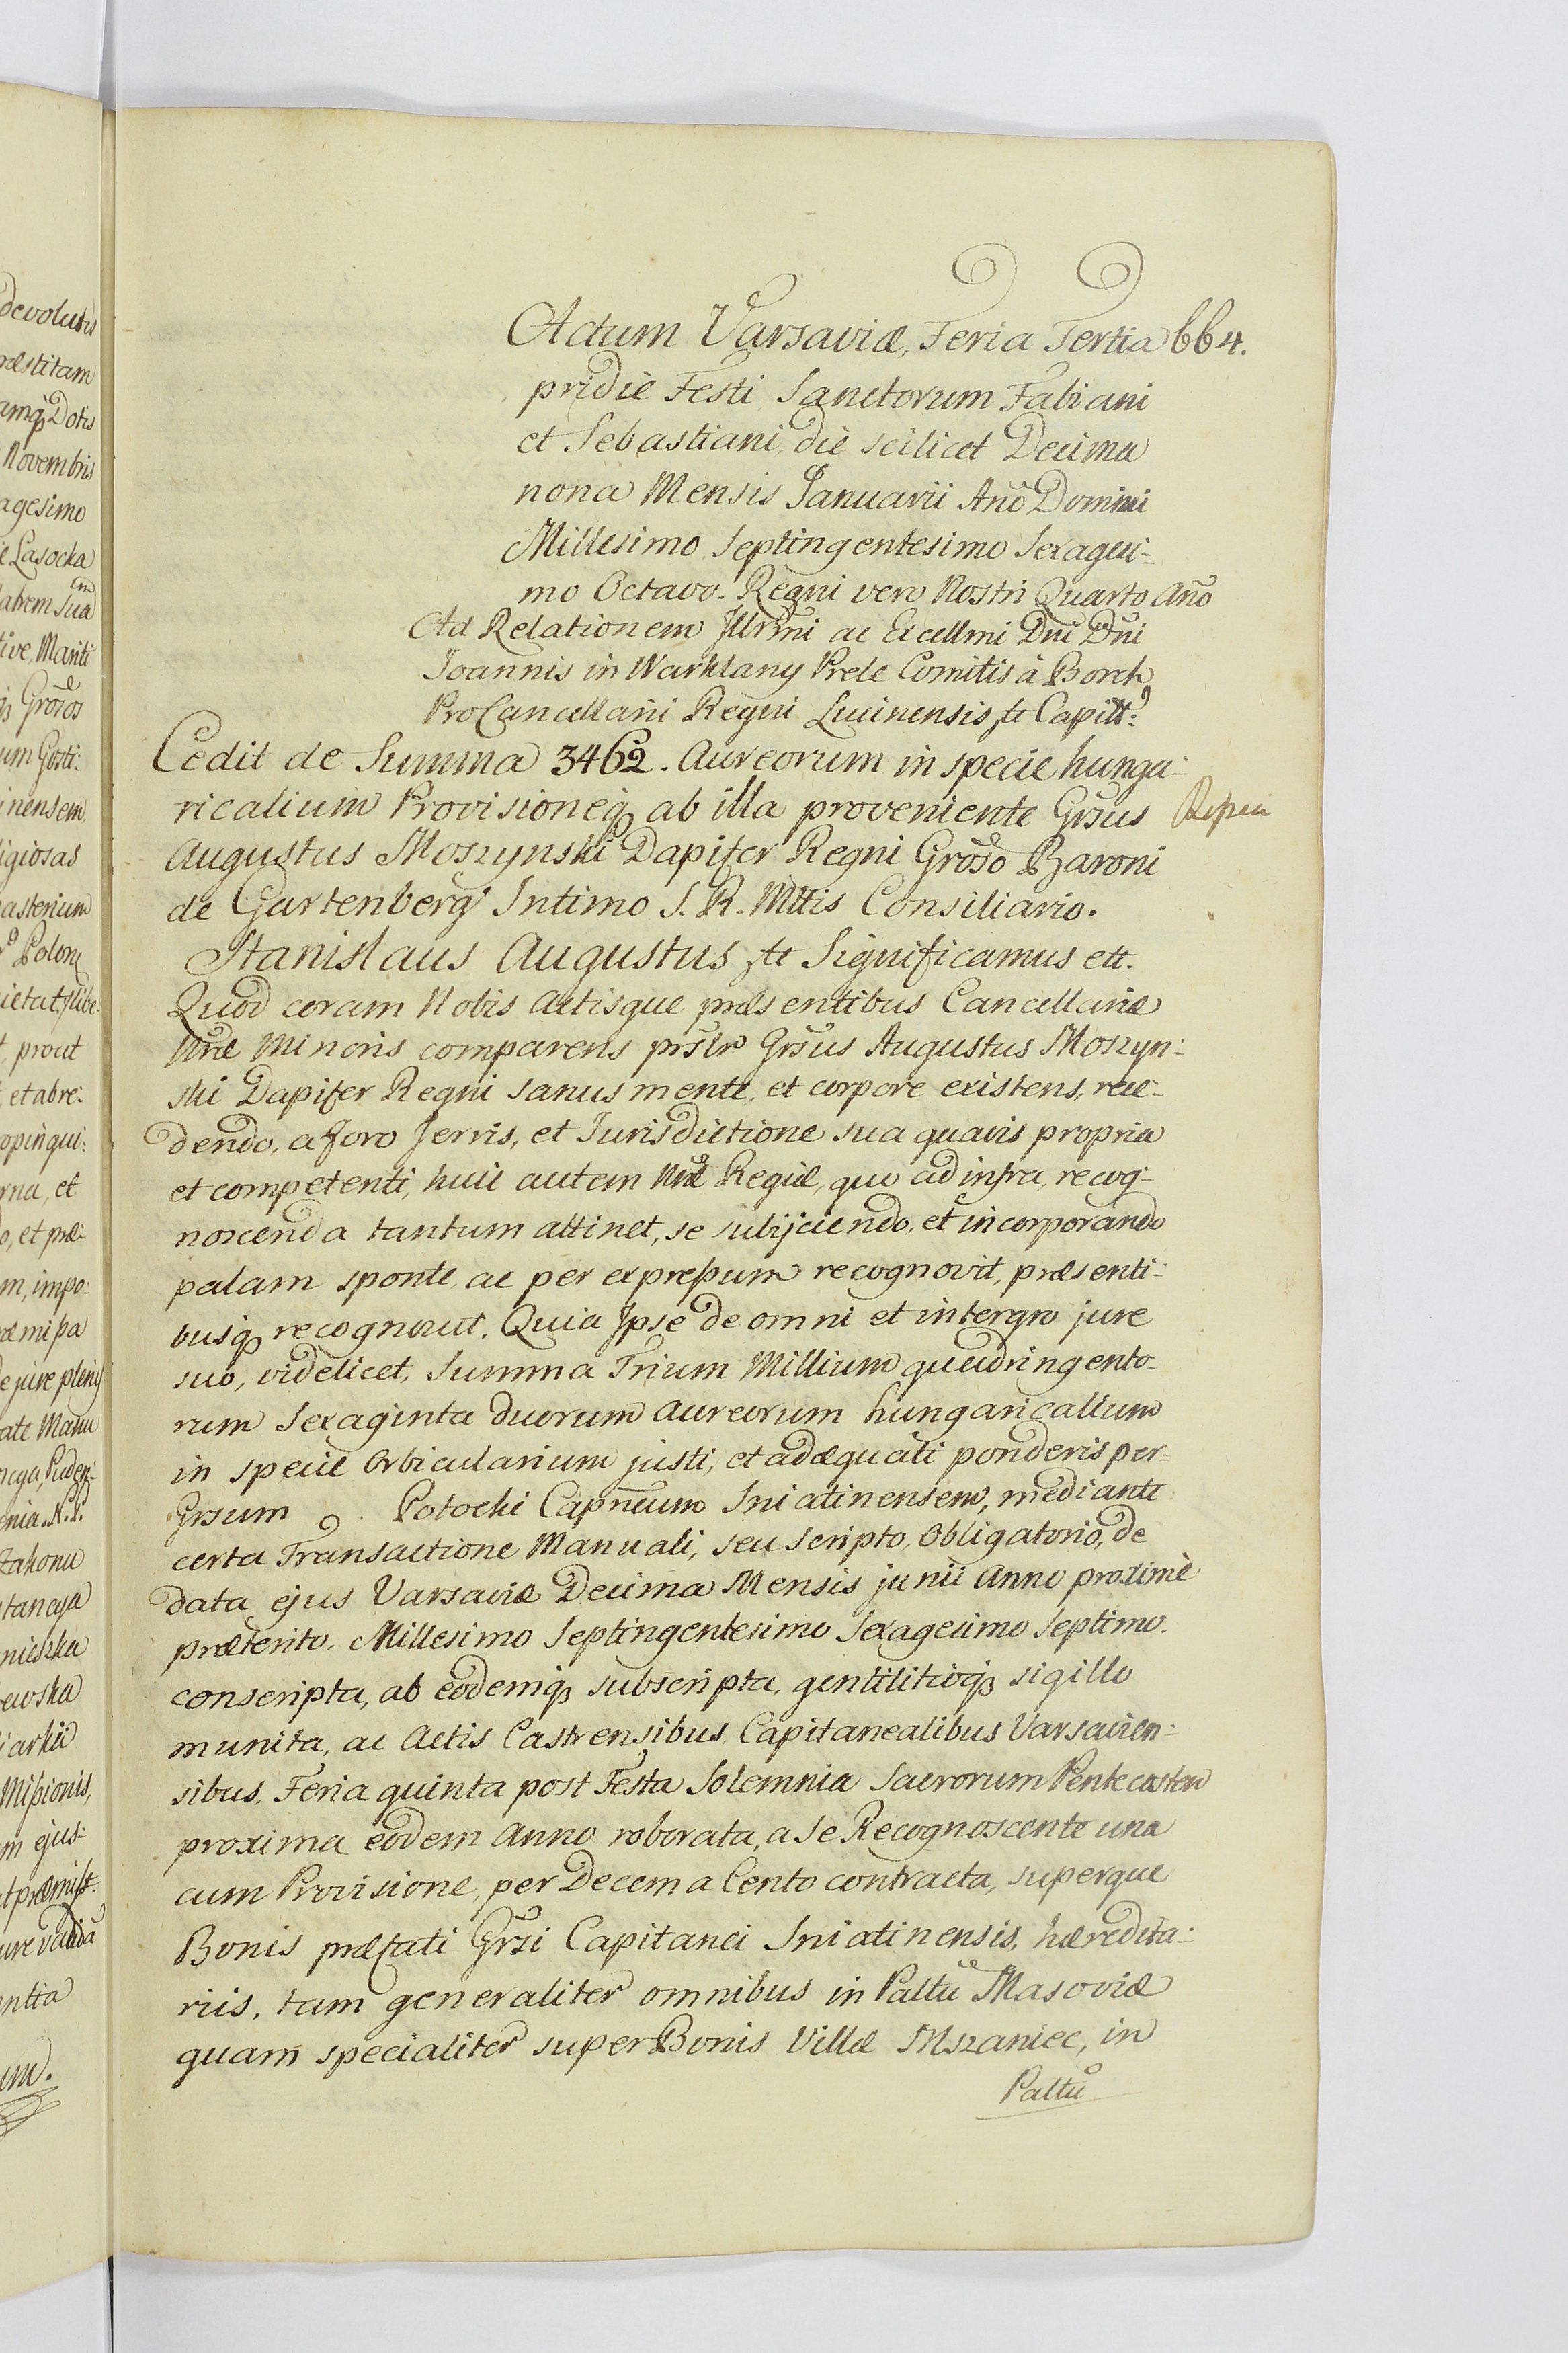 Actum Varsaviæ, Feria Tertia 664.
pridie Festi Sanctorum Fabiani
et Sebastiani, die scilicet Decima
nona Mensis Januarii Anō Domini
Millesimo Septingentesimo Sexagesi-
mo Octavo. Regni vero Nostri Quarto Anō
Ad Relationem Illrmi ac Excellmi Dni Dni
Joannis in Warklany Prele Comitis à Borch
ProCancellarii Regni Lucinensis etc Capitt:
Cedit de Summa 3462. Aureorum in specie hunga-
ricalium Provisioneq ab illa proveniente Grsus
Augustus Moszynski Dapifer Regni Groso Baroni
de Gartenberg Intimo S. R. Mttis Consiliario.
Stanislaus Augustus etc Significamus ett.
Quod coram Nobis Actisque præsentibus Cancellariæ
Nræ Minoris comparens prslr Grsus Augustus Moszyn-
ski Dapifer Regni sanus mente, et corpore existens, rece-
dendo, a foro Terris, et Jurisdictione sua quavis propria
et competenti, huic autem Nræ Regiæ, quo ad infra, recog-
noscenda tantum attinet, se subijciendo, et incorporando
palam sponte, ac per expreßum recognovit, præsenti-
busq recognoscit. Quia Ipse de omni et intergro jure
suo, videlicet, Summa Trium Millium quadringento-
rum Sexaginta duorum Aureorum hungaricalium
in specie Orbicularium justi, et adæquati ponderis per-
Grsum Potocki Capneum Sniatinensem, mediante
certa Transactione Manuali, seu Scripto, Obligatorio, de
data ejus Varsaviæ Decima Mensis junii Anno proximè
præterito. Millesimo Septingentesimo Sexagesimo Septimo.
conscripta, ab eodemq subscripta, gentilitioq sigillo
munita, ac Actis Castrensibus Capitanealibus Varsavien-
sibus. Feria quinta post Festa Solemnia Sacrorum Pentecosten
proxima eodem Anno roborata, a Se Recognoscente una
cum Provisione, per Decem a Cento contracta, superque
Bonis præfati Grsi Capitanei Sniatinensis, hæredita-
riis, tam generaliter omnibus in Paltū Masoviæ
quam specialiter super Bonis Villæ Mszaniec, in
Paltū